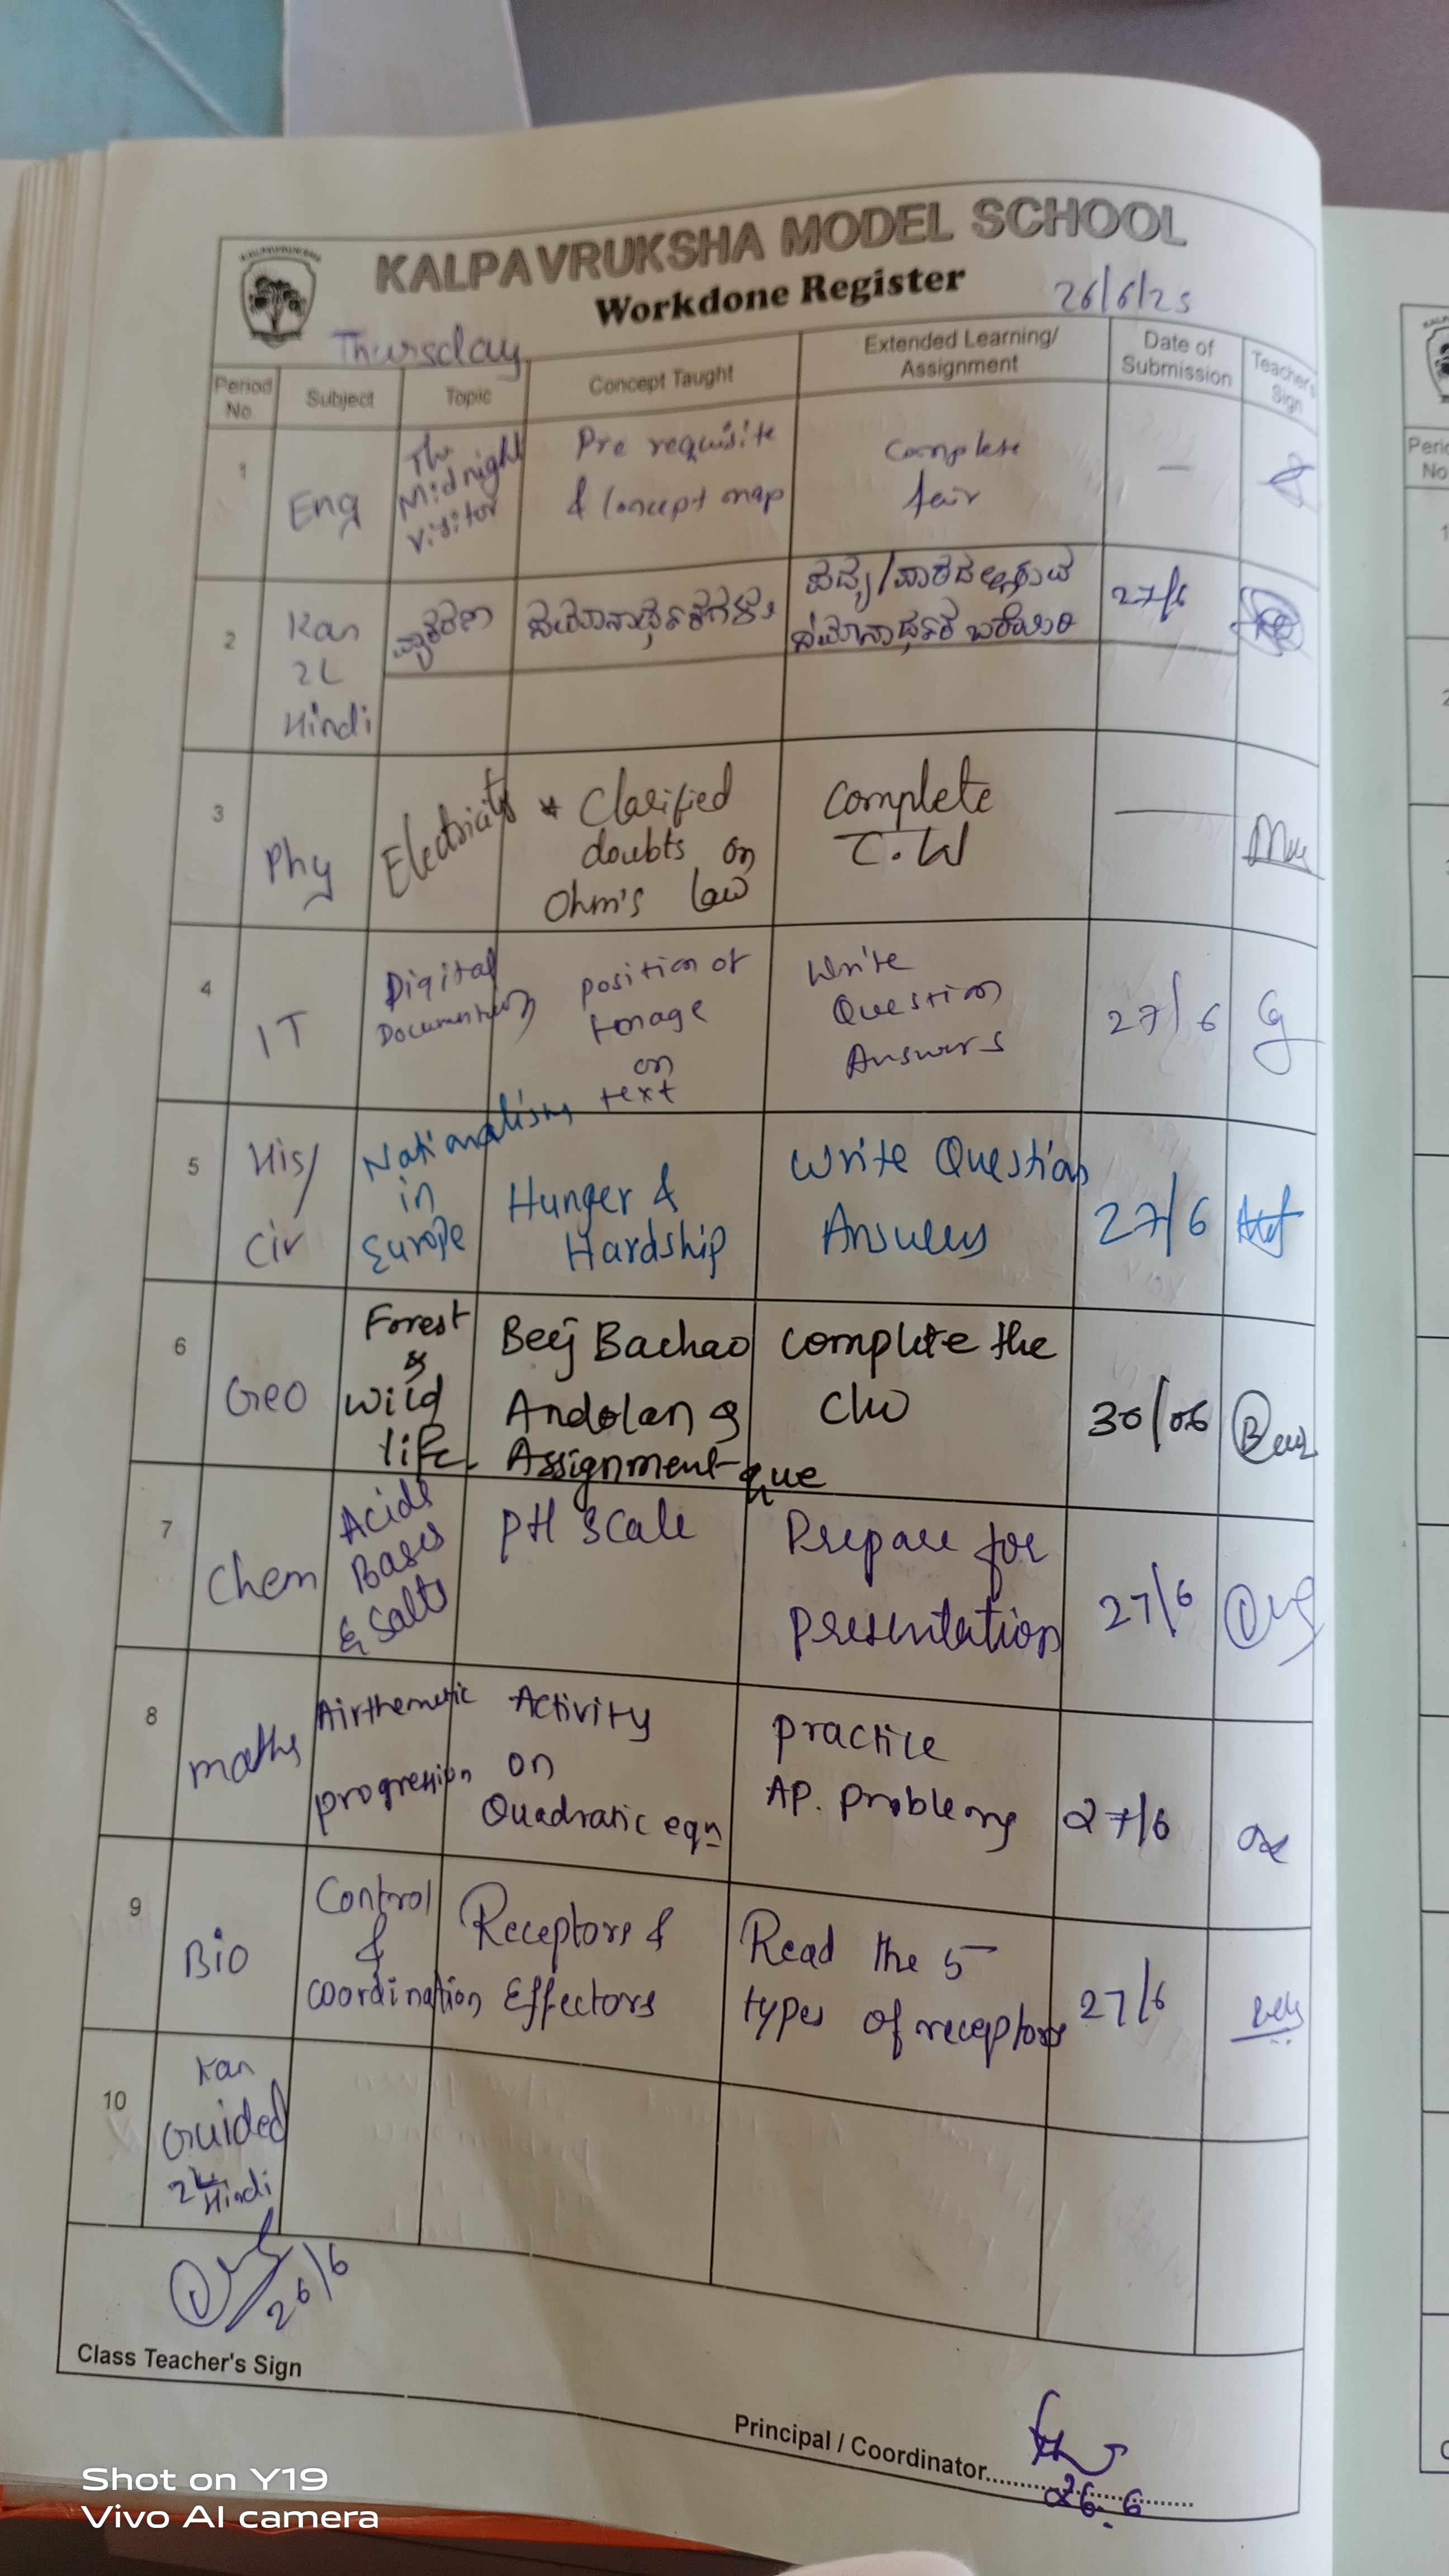 KALPAVRUKSHA
KALPAVRUKSHA MODEL SCHOOL
Workdone Register
Thursday
26/6/25
Period No.
Subject
Topic
Concept Taught
Extended Learning/ Assignment
Date of Submission
Teacher's Sign
1
Eng
The
Midnight
visitor
Pre requisite
& Concept map
Complete
fair
—
2
Kan
2L
Hindi
ವ್ಯಾಕರಣ
ಸಮಾನಾರ್ಥಕಗಳು
27/6
3
Phy
Electricity
* Clarified
doubts on
Ohm's law
Complete
C.W
—
4
IT
Digital
Documentation
position of
Image
on
text
Write
Question
Answers
27/6
5
His/
Civ
Nationalism
in
Europe
Hunger &
Hardship
Write Question
Answers
27/6
6
Geo
Forest
&
Wild
life.
Beej Bachao
Andolan &
Assignment que
Complete the
CW
30/06
7
Chem
Acids
Bases
& Salts
pH scale
Prepare for
presentation
27/6
8
maths
Airthemetic
progression
Activity
on
Quadratic eqn
practice
AP. problems
27/6
9
Bio
Control
&
coordination
Receptors &
Effectors
Read the 5
types of receptors
27/6
10
Kan
Guided
2L Hindi
26/6
Class Teacher's Sign
Principal / Coordinator
26.6
Shot on Y19
Vivo AI camera
Perio
No